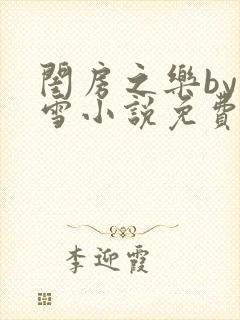 閨房之樂by
雪小說免費
李迎霞